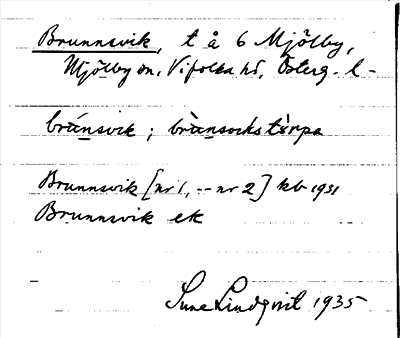 Brunnsvik, t å 6 Mjölby,
Mjölby sn, Vifolka hd, Österg. l-
bránsvik ; brànsvikstärpa
Brunnsvik [nr 1, -- nr 2] kb 1931
Brunnsvik ek
Sune Lindqvist 1935